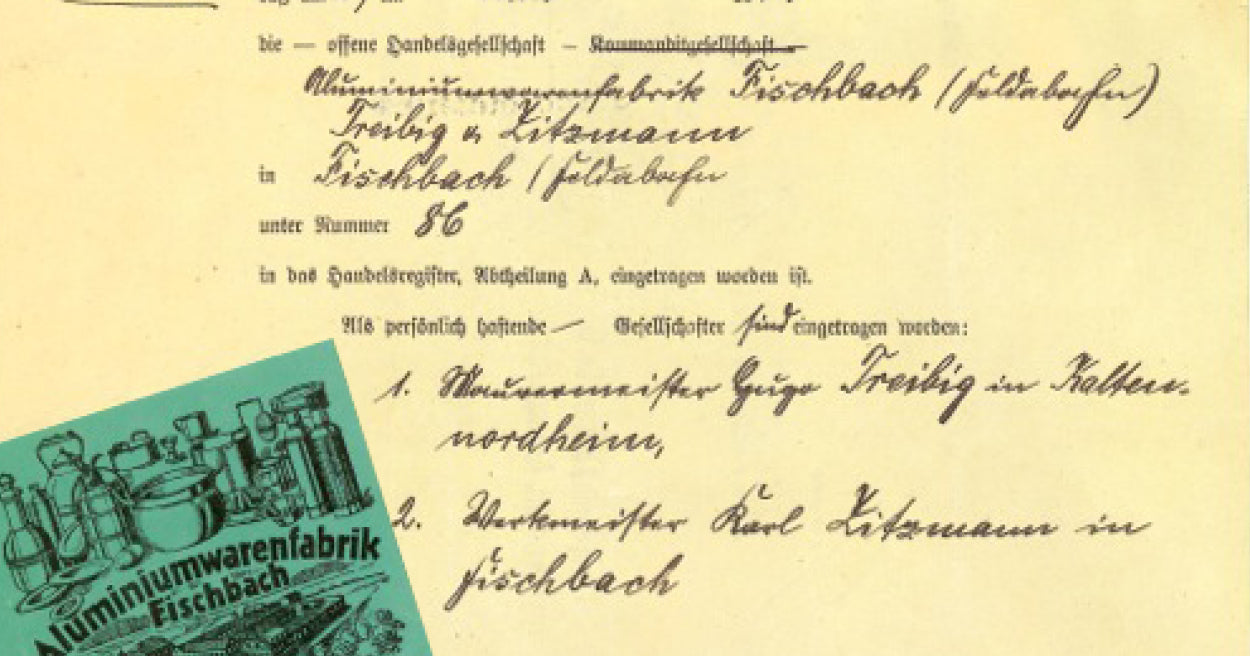 die — offene Handelsgesellschaft – Kommanditgesellschaft –
Aluminiumwarenfabrik Fischbach (Feldabahn)
Treibig u. Zitzmann
in Fischbach / Feldabahn
unter Nummer 86
in das Handelsregister, Abtheilung A, eingetragen worden ist.
Als persönlich haftende — Gesellschafter sind eingetragen worden:
1. Maurermeister Hugo Treibig in Kalten-
nordheim,
2. Werkmeister Karl Zitzmann in
Fischbach
Aluminiumwarenfabrik
Fischbach